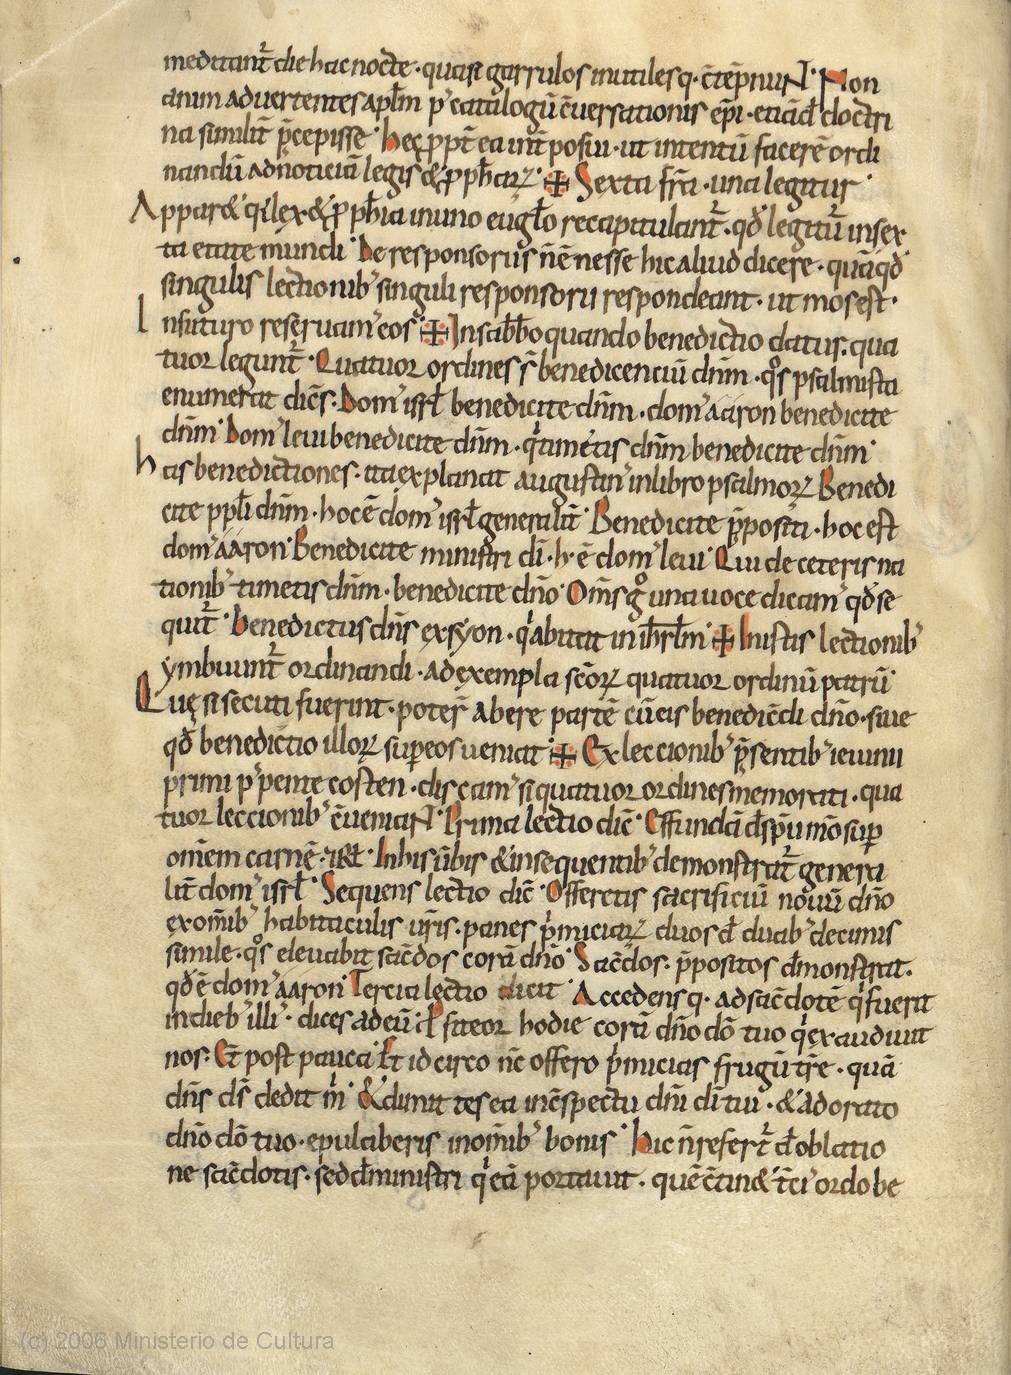 meditant᷑ die hac nocte · quasi garrulos inutilesq· c̄tēpnuNt· Non
animadvertentes aplm̄ p᷒ catalogū c̄versationis ep̄i · etiā d̄ doctri
na similit᷑ p̄cepisse · hęc ppt̄ ea int̄posui · ut intentū facerē ordi
nandū ad noticiā legis & pph̄iarꝝ · ✠ Sexta fr̄a · una legitur ·
Appar& q᷒ lex & pph̄ia in uno eugl̄o recapitulant᷑ · qd̄ legitū in sex
ta etate mundi · De responsoriis n̄ē nesse hic aliud dicere · quā qd̄
singulis lectionib᷒ singuli responsorii respondeant · ut mos est ·
In futuro reservam᷒ eos · ✠ In sabb̄o quando benedictio datur · qua
tuor legunt᷑ · Quatuor ordines s̄ benedicenciū dnm̄ · qos psalmista
enumerat dicēs · Dom᷒ isrl̄ benedicite dnm̄ · dom᷒ aaron benedicite
dnm̄ · Dom᷒ levi benedicite dnm̄ · qi timetis dnm̄ benedicite dnm̄ ·
has benedictiones · ita explanat augustin᷒ in libro psalmorꝝ · Benedi
cite ppl̄i dnm̄ · hoc ē dom᷒ isrl̄ generalit᷑ · Benedicite p̄positi · hoc est
dom᷒ aaron · Benedicite ministri dī · h· ē dom᷒ levi · Qui de ceteris na
tionib᷒ timetis dnm̄ · benedicite dn̄o · Om̄s go una voce dicam᷒ qd̄ se
quit᷑ · Benedictus dn̄s ex syon · qi abitat in ihrl̄m · ✠ In istis lectionib᷒
ymbuunt᷑ ordinandi · ad exempla sc̄orꝝ quatuor ordinū patrū ·
Quę si secuti fuerint · poter̄ abere partē cū eis benedicēdi dn̄o · sive
qd̄ benedictio illorꝝ super eos veniat · ✠ Ex leccionib᷒ p̄sentib᷒ ieiunii
primi p᷒ pentecosten · discam᷒ si quatuor ordines memorati · qua
tuor leccionib᷒ c̄veniaNt · Prima lectio dic̄ · Effundā d̄ sp̄u mō sup
omēm carnē · & rl̄ · In his ūbis & in sequentib᷒ demonstrat᷑ genera
lit᷑ dom᷒ isrl̄ · Sequens lectio dic̄ · Offeretis sacrificiū novū dn̄o
ex omīb᷒ habitaculis vr̄is · panes p̄miciarꝝ duos d̄ duab᷒ decimis
simile · qos elevabit sac̄dos corā dn̄o · Sac̄dos · p̄positos d̄monstrat ·
qd̄ ē dom᷒ aaron · Tercia lectio dicit · Accedensq· ad sac̄dotē qi fuerit
in dieb᷒ illi᷒ · dices ad eū · P̄fiteor hodie corā dn̄o dō tuo qi exaudivit
nos · Et post pauca · Et idcirco nc̄ offero p̄micias frugū tr̄e · quā
dn̄s ds̄ dedit m̄i · & dimittes ea in c̄spectu dnī dī tui · & adorato
dn̄o dō tuo · epulaberis in omīb᷒ bonis · hic n̄ refert᷑ d̄ oblatio
ne sac̄dotis · sed d̄ ministri qi eā portavit · quē c̄tin& t̄ci᷒ ordo be